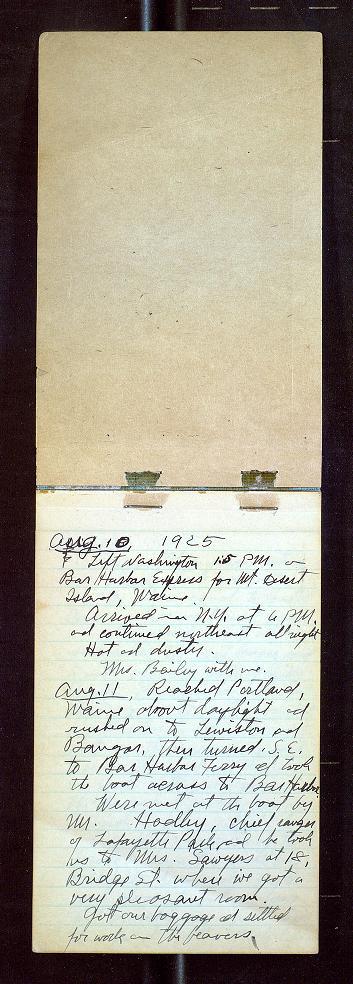 Aug. 10, 1925
Left Washington 1.5 P.M. on
Bar Harbor Express for Mt. Desert
Island, Maine
Arrived in N.Y. at 6 P.M.
ad continued northeast all night
Hot ad dusty.
Mrs. Bailey with me.
Aug. 11, Reached Portland,
Maine about daylight ad
rushed on to Lewiston ad
Bangor, then turned S.E.
to Bar Harbor Ferry ad took
the boat across to Bar Harbor
Were met at the boat by
Mr. Hadley, chief ranger
of Lafayette Park, ad he took
us to Mrs. Sawyers at 18,
Bridge St. where we got a
very pleasant room.
Got our baggage ad settled
for work on the beavers.